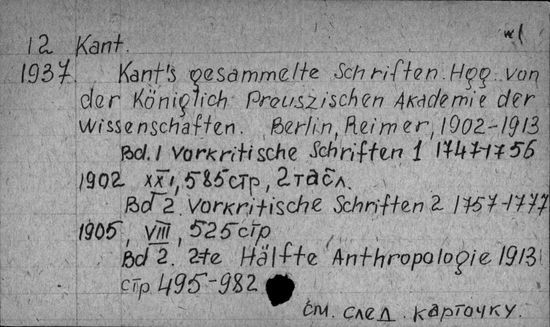 12 Kant.
1937. Kant's gesammelte Schriften. Hgg. von
der Königlich Preuszischen Akademie der
Wissenschaften. Berlin, Reimer, 1902-1913
Bd. 1 Vorkritische Schriften 1 1747-1756
1902 XXI, 585 стр, 2 табл.
Bd 2. Vorkritische Schriften 2 1757-1777
1905, VIII, 525 стр
Bd 2. 2te Hälfte Anthropologie 1913
стр 495-982
см. след. карточку.